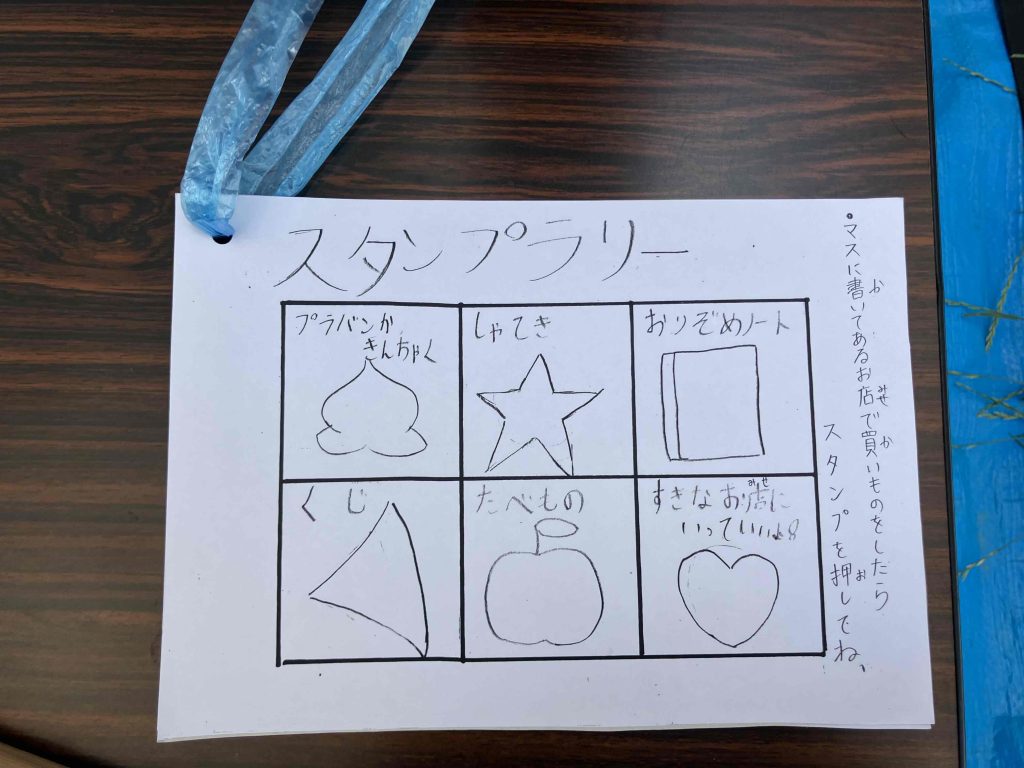 スタンプラリー
プラバンか
きんちゃく
しゃてき
おりぞめノート
くじ
たべもの
すきなお店に
みせ
いっていいよ
・マスに書いてあるお店で買いものをしたら
か
みせ
か
スタンプを押してね、
お